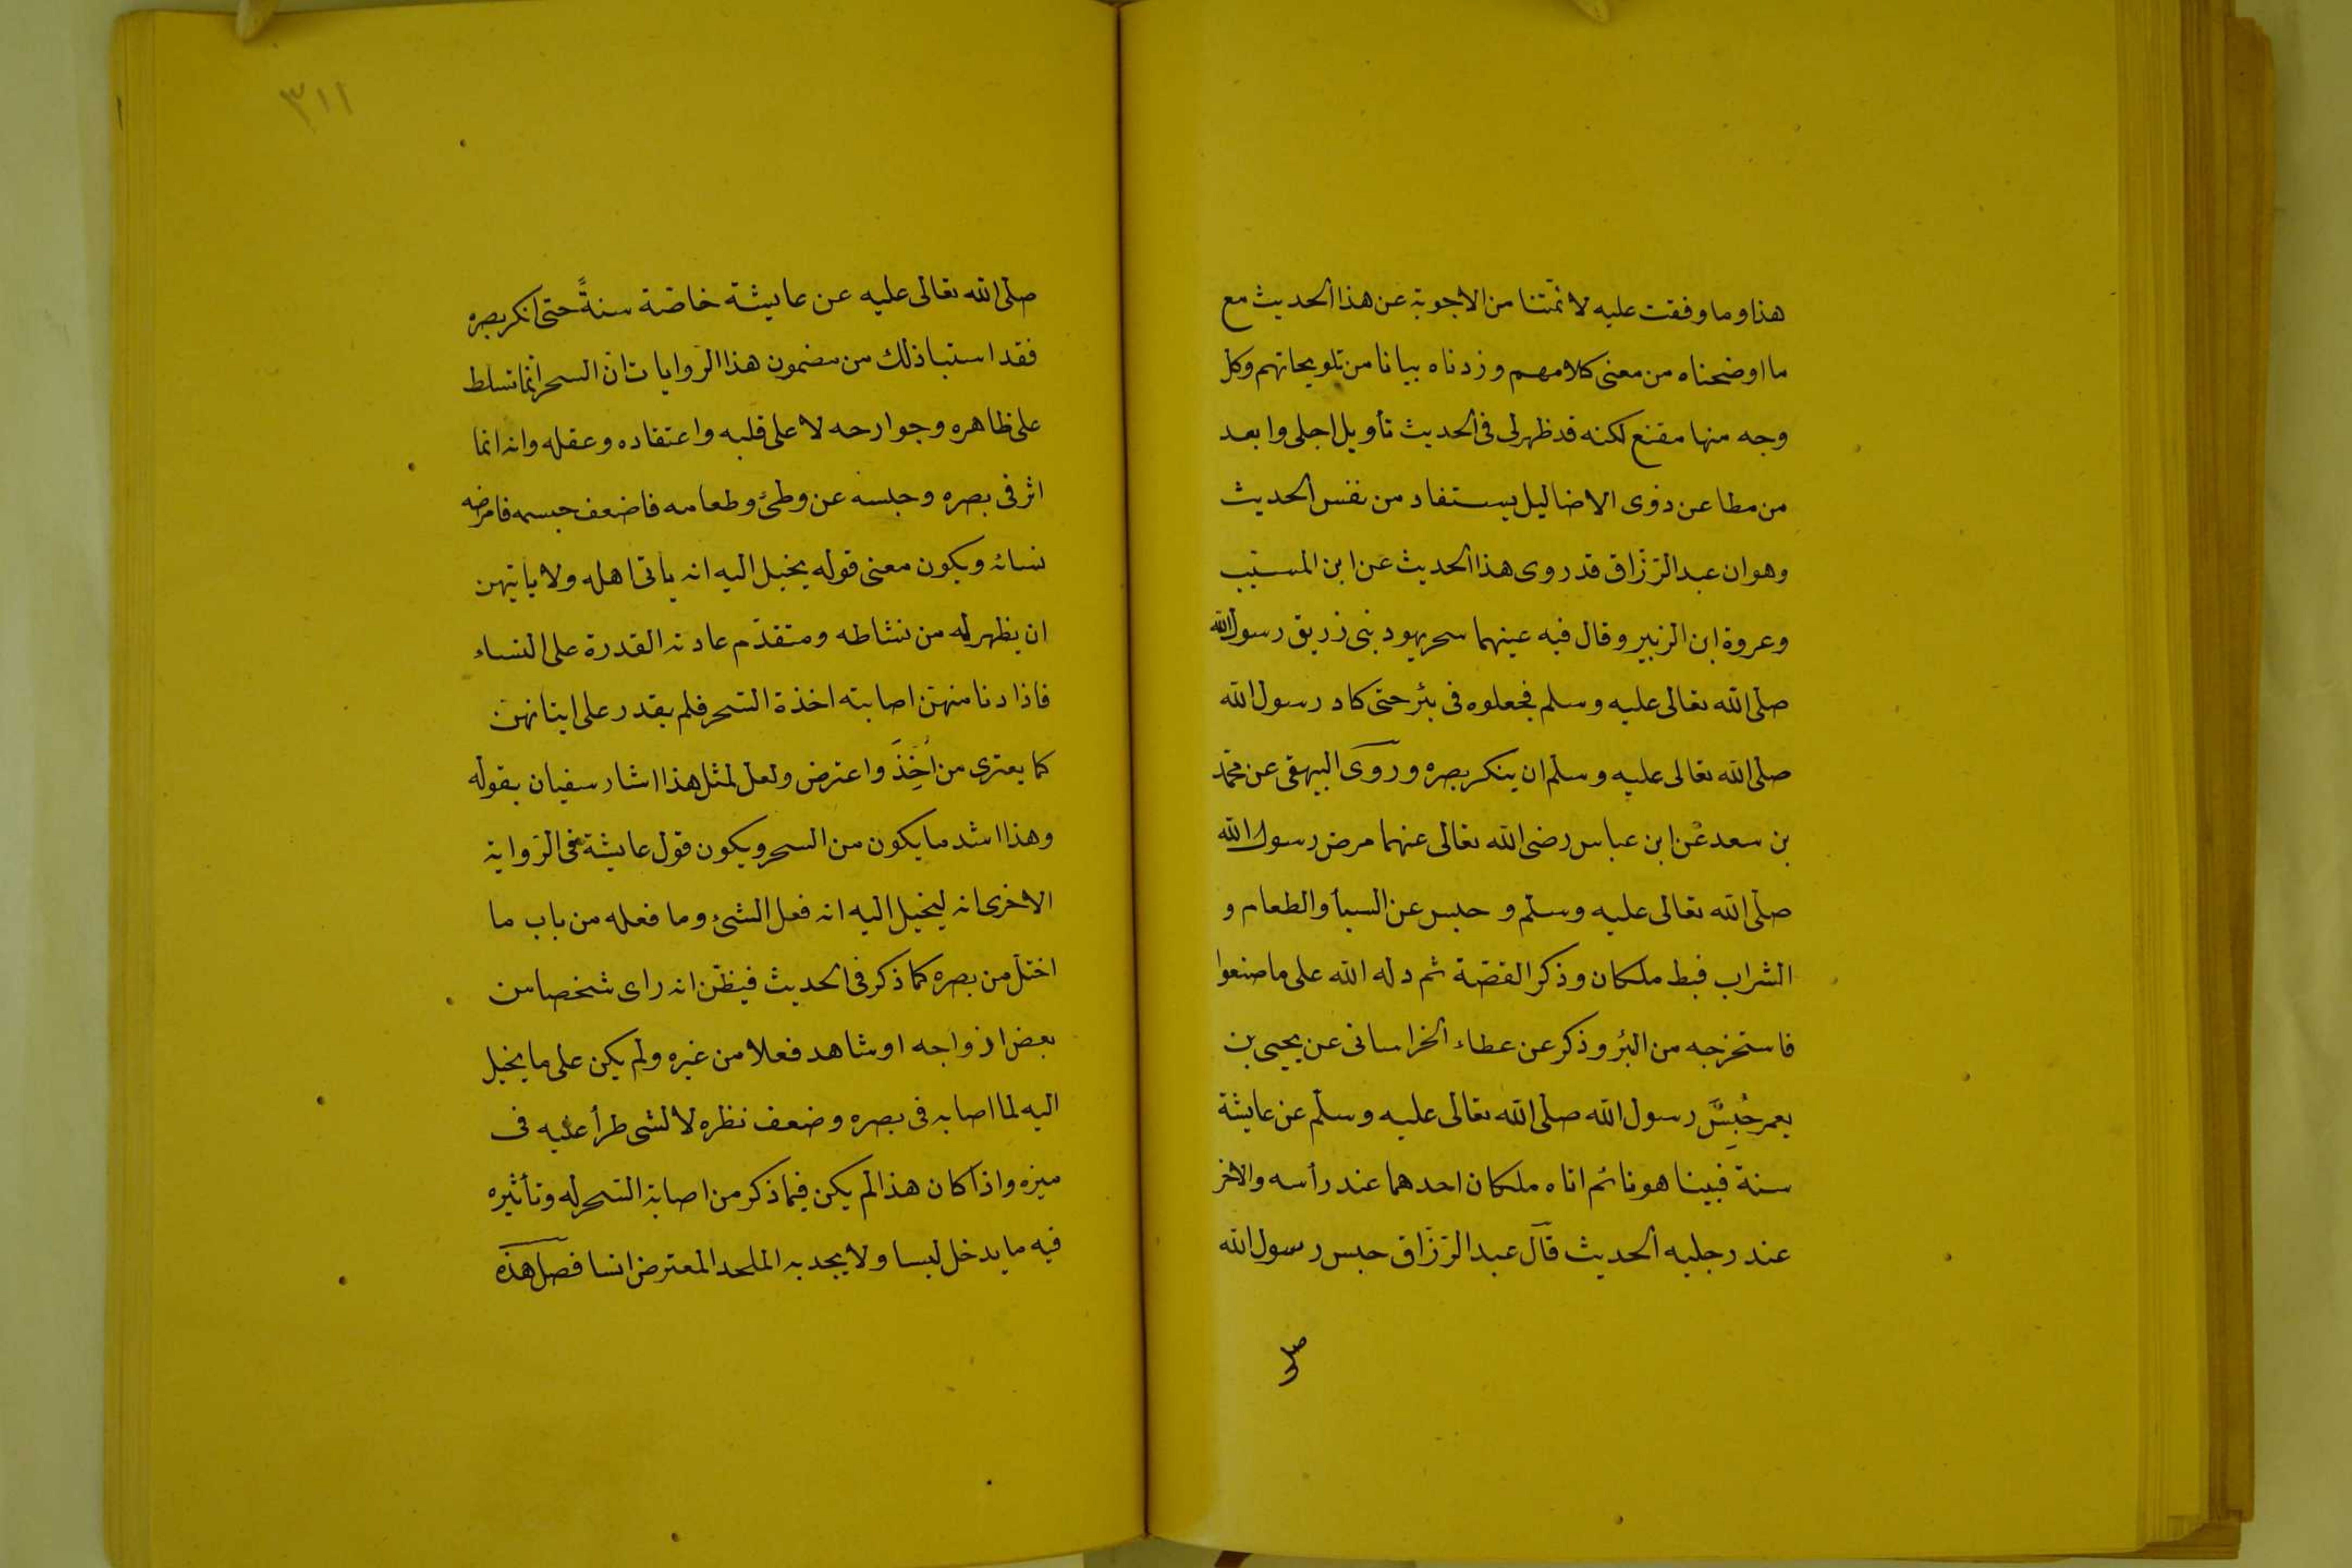 هذا وما وفقت عليه لائمّتنا من الاجوبة عن هذا الحديث مع
ما اوضحناه من معنى كلامهم وزدناه بيانا من تلويحاتهم وكل
وجه منها مقنع لكنه قد ظهر لى فى الحديث تأويل اجلى وابعد
من مطاعن ذوى الاضاليل يستفاد من نفس الحديث
وهو ان عبد الرّزّاق قد روى هذا الحديث عن ابن المسيّب
وعروة ابن الزبير وقال فيه عينهما سحر يهود بنى زريق رسول الله
صلى الله تعالى عليه وسلم فجعلوه فى بئر حتى كاد رسول الله
صلى الله تعالى عليه وسلم ان ينكر بصره وروى البيهقى عن محمّد
بن سعد عن ابن عباس رضى الله تعالى عنهما مرض رسول الله
صلى الله تعالى عليه وسلم و حبس عن السبأ والطعام و
الشراب فبط ملكان وذكر القصّة ثم دله الله على ما صنعوا
فاستخرجه من البئر وذكر عن عطاء الخراسانى عن يحيى بن
يعمر حُبِسَ رسول الله صلى الله تعالى عليه وسلم عن عايشة
سنة فبينا هو نائم اتاه ملكان احدهما عند رأسه والاخر
عند رجليه الحديث قال عبد الرّزّاق حبس رسول الله
صلى
٣١١
صلى الله تعالى عليه عن عايشة خاصّة سنةً حتى انكر بصره
فقد استبا ذلك من مضمون هذا الرّوايات انّ السحر انما تسلط
على ظاهره وجوارحه لا على قلبه واعتقاده وعقله وانه انما
اثر فى بصره وحبسه عن وطئ وطعامه فاضعف جسمه فامرضه
نسائه ويكون معنى قوله يخيل اليه انه ياتى اهله ولا ياتيهن
ان يظهر له من نشاطه ومتقدّم عادته القدرة على النساء
فاذا دنا منهنّ اصابته اخذة السّحر فلم يقدر على ايتانهنّ
كما يعترى من اُخِّذَ واعترض ولعل لمثل هذا اشار سفيان بقوله
وهذا اشد ما يكون من السحر ويكون قول عايشة فى الرّواية
الاخرى انه ليخيل اليه انه فعل الشئ وما فعله من باب ما
اختلّ من بصره كما ذكر فى الحديث فيظنّ انه راى شخصا من
بعض ازواجه او شاهد فعلا من غيره ولم يكن على ما يخيل
اليه لما اصابه فى بصره وضعف نظره لا لشى طرأ عليه فى
ميزه واذا كان هذا لم يكن فيما ذكر من اصابة السّحر له وتأثيره
فيه ما يدخل لبسا ولا يجد به الملحد المعترض انسا فصل هذه